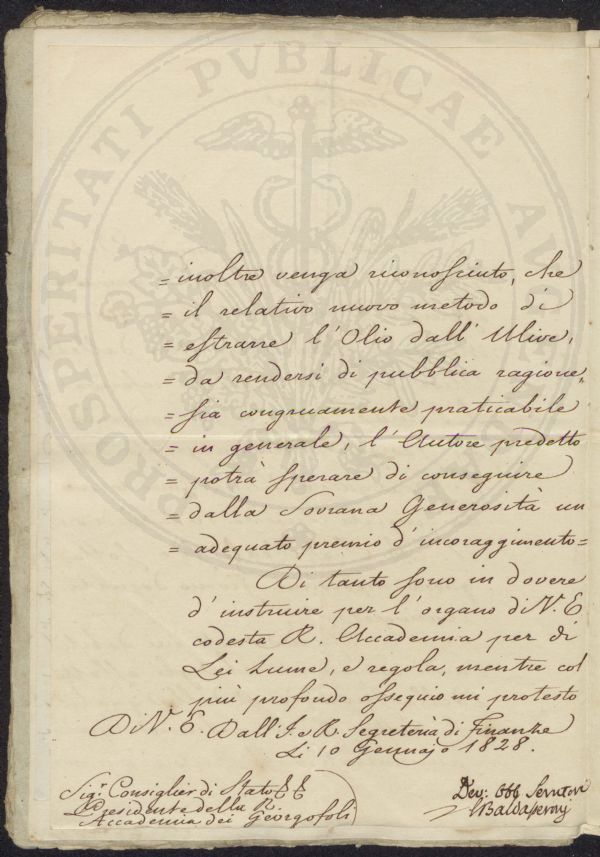 PROSPERITATI PVBLICAE AVG
= inoltre venga riconosciuto, che
= il relativo nuovo metodo di
= estrarre l'Olio dall'Ulive,
= da rendersi di pubblica ragione,
= sia congruamente praticabile
= in generale, l'Autore predetto
= potrà sperare di conseguire
= dalla Sovrana Generosità un
= adequato premio d'incoraggimento =
Di tanto sono in dovere
d'instruire per l'organo di V. E.
codesta R. Accademia per di
Lei Lume, e regola, mentre col
più profondo ossequio mi protesto
Di V. E. Dall'I. e R. Segreteria di Finanze
Li 10 Gennajo 1828.
Sigr. Consiglier di Stato
Presidente della R.
Accademia dei Georgofoli
Dev: Obb Servitore